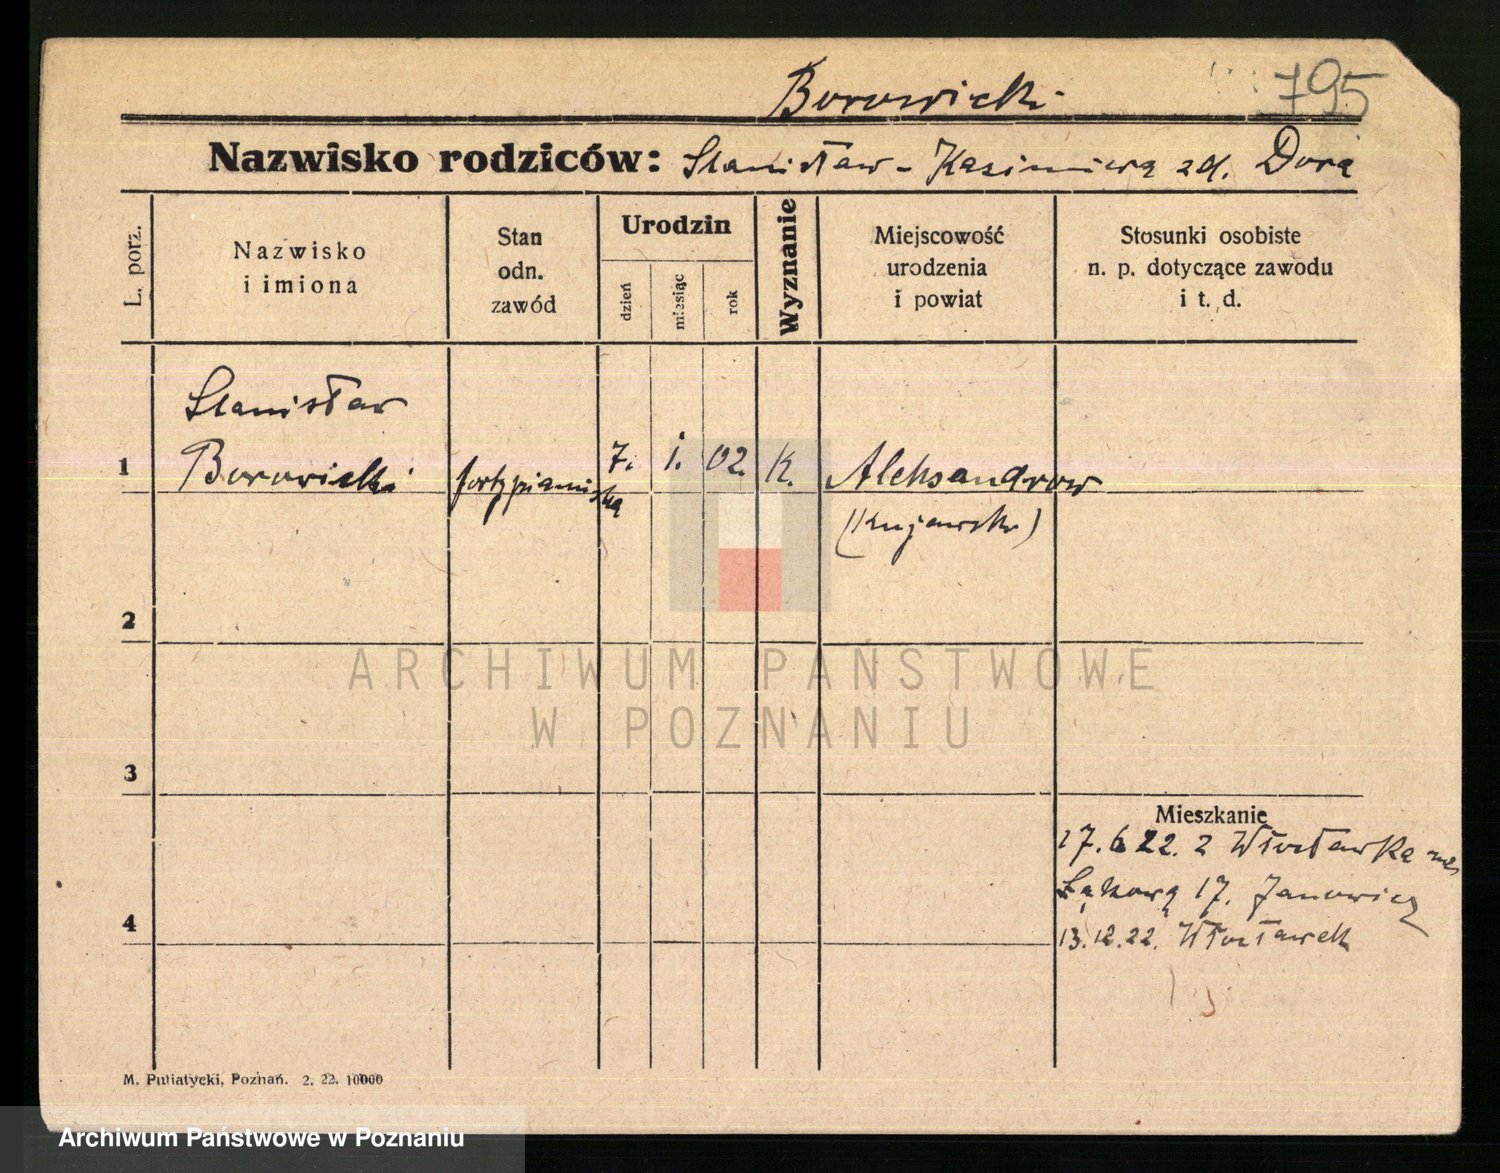 795
Borowicki
Nazwisko rodziców: Stanisław - Kazimiera zd. Dora
L. porz.
Nazwisko
i imiona
Stan
odn.
zawód
Urodzin
dzień
miesiąc
rok
Wyznanie
Miejscowość
urodzenia
i powiat
Stosunki osobiste
n. p. dotyczące zawodu
i t. d.
Stanisław
1 Borowicki fortypianista 7. i. 02. K. Aleksandrow
(Kujawski)
2
3
4
Mieszkanie
17.6 22. z Włocławka
Łąkową 17. Janowicz
13.12.22. Włocławek
M. Putiatycki, Poznań. 2. 22. 10000
ARCHIWUM PAŃSTWOWE
W POZNANIU
Archiwum Państwowe w Poznaniu